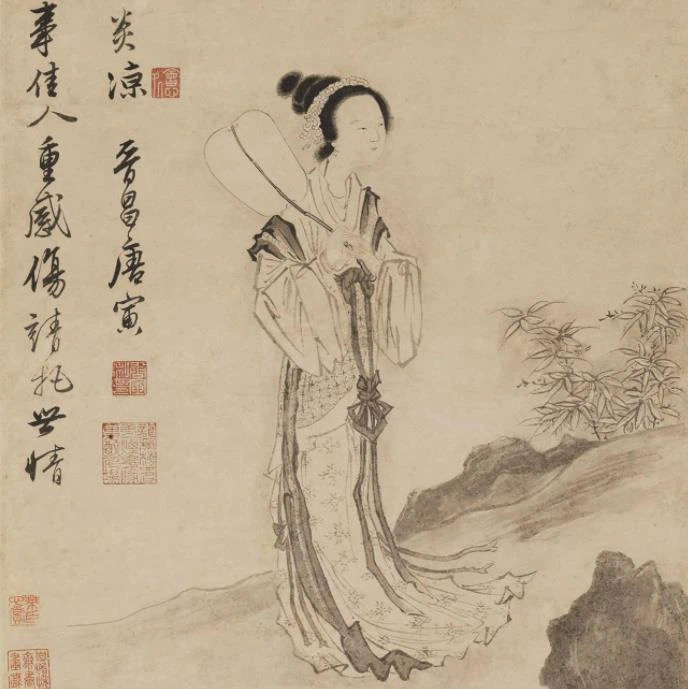 事佳人重感傷請把世情
炎涼
晉昌唐寅